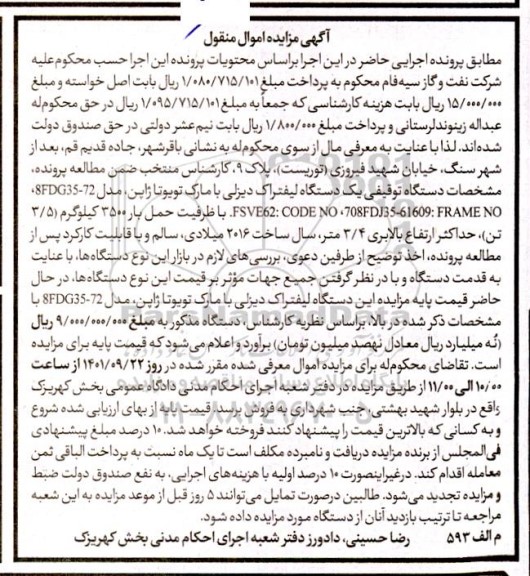 آگهی مزایده اموال منقول
مطابق پرونده اجرایی حاضر در این اجرا براساس محتویات پرونده این اجرا حسب محکوم‌علیه
شرکت نفت و گاز سپه‌فام محکوم به پرداخت مبلغ ۱/۰۸۰/۷۱۵/۱۰۱ ریال بابت اصل خواسته و مبلغ
۱۵/۰۰۰/۰۰۰ ریال بابت هزینه کارشناسی که جمعاً به مبلغ ۱/۰۹۵/۷۱۵/۱۰۱ ریال در حق محکوم‌له
عبداله زینوندلرستانی و پرداخت مبلغ ۱/۸۰۰/۰۰۰ ریال بابت نیم‌عشر دولتی در حق صندوق دولت
شده‌اند. لذا با عنایت به معرفی مال از سوی محکوم‌له به نشانی باقرشهر، جاده قدیم قم، بعد از
شهر سنگ، خیابان شهید فیروزی (توریست)، پلاک ۹، کارشناس منتخب ضمن مطالعه پرونده،
مشخصات دستگاه توقیفی یک دستگاه لیفتراک دیزلی با مارک تویوتا ژاپن، مدل 8FDG35-72،
FSVE62: CODE NO ،708FDJ35-61609: FRAME NO. با ظرفیت حمل بار ۳۵۰۰ کیلوگرم (۳/۵
تن)، حداکثر ارتفاع بالابری ۳/۴ متر، سال ساخت ۲۰۱۶ میلادی، سالم و با قابلیت کارکرد پس از
مطالعه پرونده، اخذ توضیح از طرفین دعوی، بررسی‌های لازم در بازار این نوع دستگاه‌ها، با عنایت
به قدمت دستگاه و با در نظر گرفتن جمیع جهات مؤثر بر قیمت این نوع دستگاه‌ها، در حال
حاضر قیمت پایه مزایده این دستگاه لیفتراک دیزلی با مارک تویوتا ژاپن، مدل 8FDG35-72 با
مشخصات ذکر شده در بالا، براساس نظریه کارشناس، دستگاه مذکور به مبلغ ۹/۰۰۰/۰۰۰/۰۰۰ ریال
(نُه میلیارد ریال معادل نهصد میلیون تومان) برآورد و اعلام می‌شود که قیمت پایه برای مزایده
است. تقاضای محکوم‌له برای مزایده اموال معرفی شده مقرر شده در روز ۱۴۰۱/۰۹/۲۲ از ساعت
۱۰/۰۰ الی ۱۱/۰۰ از طریق مزایده در دفتر شعبه اجرای احکام مدنی دادگاه عمومی بخش کهریزک
واقع در بلوار شهید بهشتی، جنب شهرداری به فروش برسد. قیمت پایه از بهای ارزیابی شده شروع
و به کسانی که بالاترین قیمت را پیشنهاد کنند فروخته خواهد شد. ۱۰ درصد مبلغ پیشنهادی
فی‌المجلس از برنده مزایده دریافت و نامبرده مکلف است تا یک ماه نسبت به پرداخت الباقی ثمن
معامله اقدام کند. درغیراینصورت ۱۰ درصد اولیه با هزینه‌های اجرایی، به نفع صندوق دولت ضبط
و مزایده تجدید می‌شود. طالبین درصورت تمایل می‌توانند ۵ روز قبل از موعد مزایده به این شعبه
مراجعه تا ترتیب بازدید آنان از دستگاه مورد مزایده داده شود.
م الف ۵۹۳ رضا حسینی، دادورز دفتر شعبه اجرای احکام مدنی بخش کهریزک